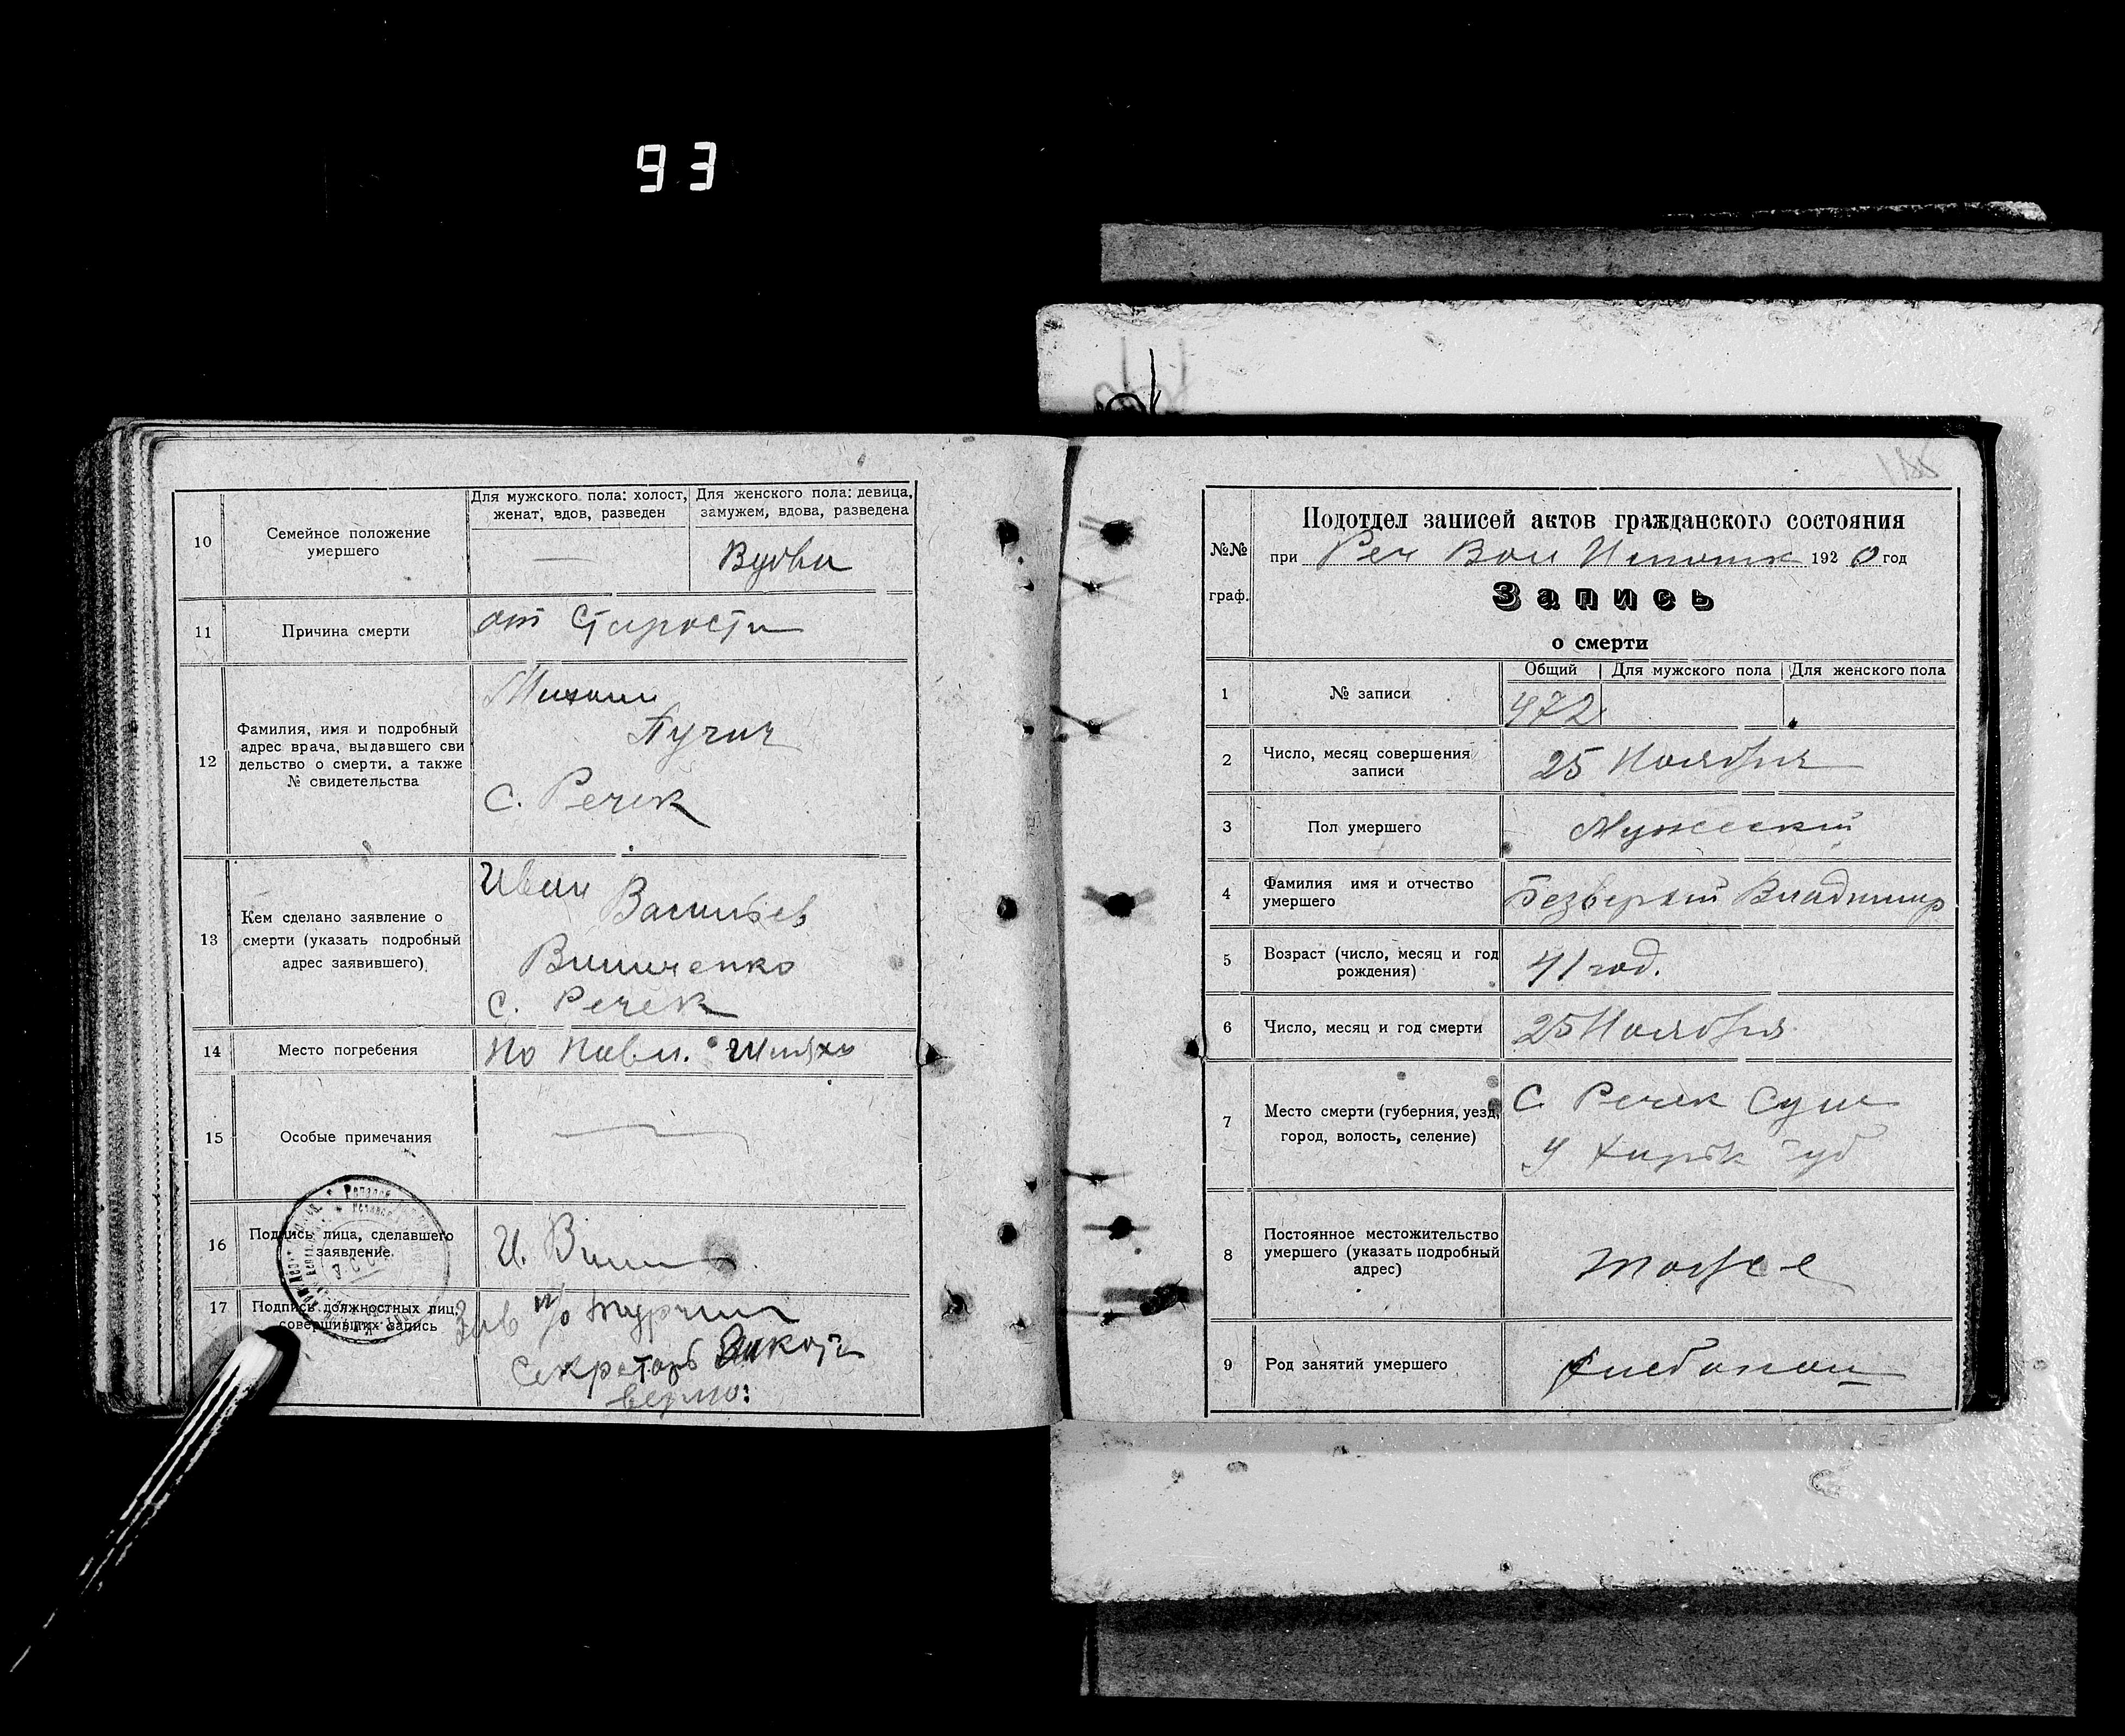 93
10
Семейное положение
умершего
Для мужского пола: холост,
женат, вдов, разведен
Для женского пола: девица,
замужем, вдова, разведена
Вдова
11
Причина смерти
от Старости
12
Фамилия, имя и подробный
адрес врача, выдавшего сви
дельство о смерти, а также
№ свидетельства
Михаил
С. Речек
13
Кем сделано заявление о
смерти (указать подробный
адрес заявившего).
Иван
Васильев
Виниченко
С. Речек
14
Место погребения
15
Особые примечания
16
Подпись лица, сделавшего
заявление.
И. Вин
17
Подпись должностных лиц,
совершивших запись
Зав п/о
Секретарь
верно:
185
№№
граф.
Подотдел записей актов гражданского состояния
при Реч Вол Исполк 1920 год
Запись
о смерти
Общий
Для мужского пола
Для женского пола
1
№ записи
472
2
Число, месяц совершения
записи
25 Ноября
3
Пол умершего
Мужеский
4
Фамилия имя и отчество
умершего
Безверхий Владимир
5
Возраст (число, месяц и год
рождения)
41 год.
6
Число, месяц и год смерти
25 Ноября
7
Место смерти (губерния, уезд,
город, волость, селение)
С Речек Сум
У Харьк губ
8
Постоянное местожительство
умершего (указать подробный
адрес)
тоже
9
Род занятий умершего
хлебопаш